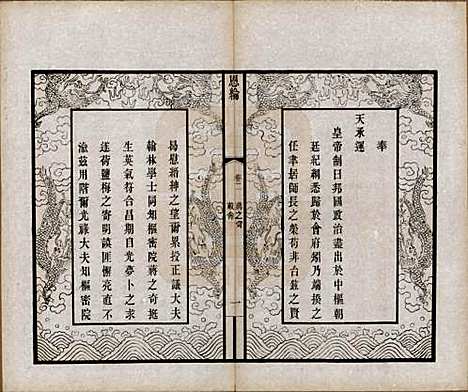 奉
天承運
皇帝制曰邦國政治盡出於中樞朝
廷紀綱悉歸於會府須乃端揆之
任聿居師長之榮苟非台鉉之賢
恩綸
卷一
蔣之奇
誥命
一
曷慰縉紳之望爾累授正議大夫
翰林學士同知樞密院蔣之奇挺
生英氣符合昌期自光夢卜之求
遂荷鹽梅之寄明謨匪懈亮直不
渝茲用階爾光祿大夫知樞密院